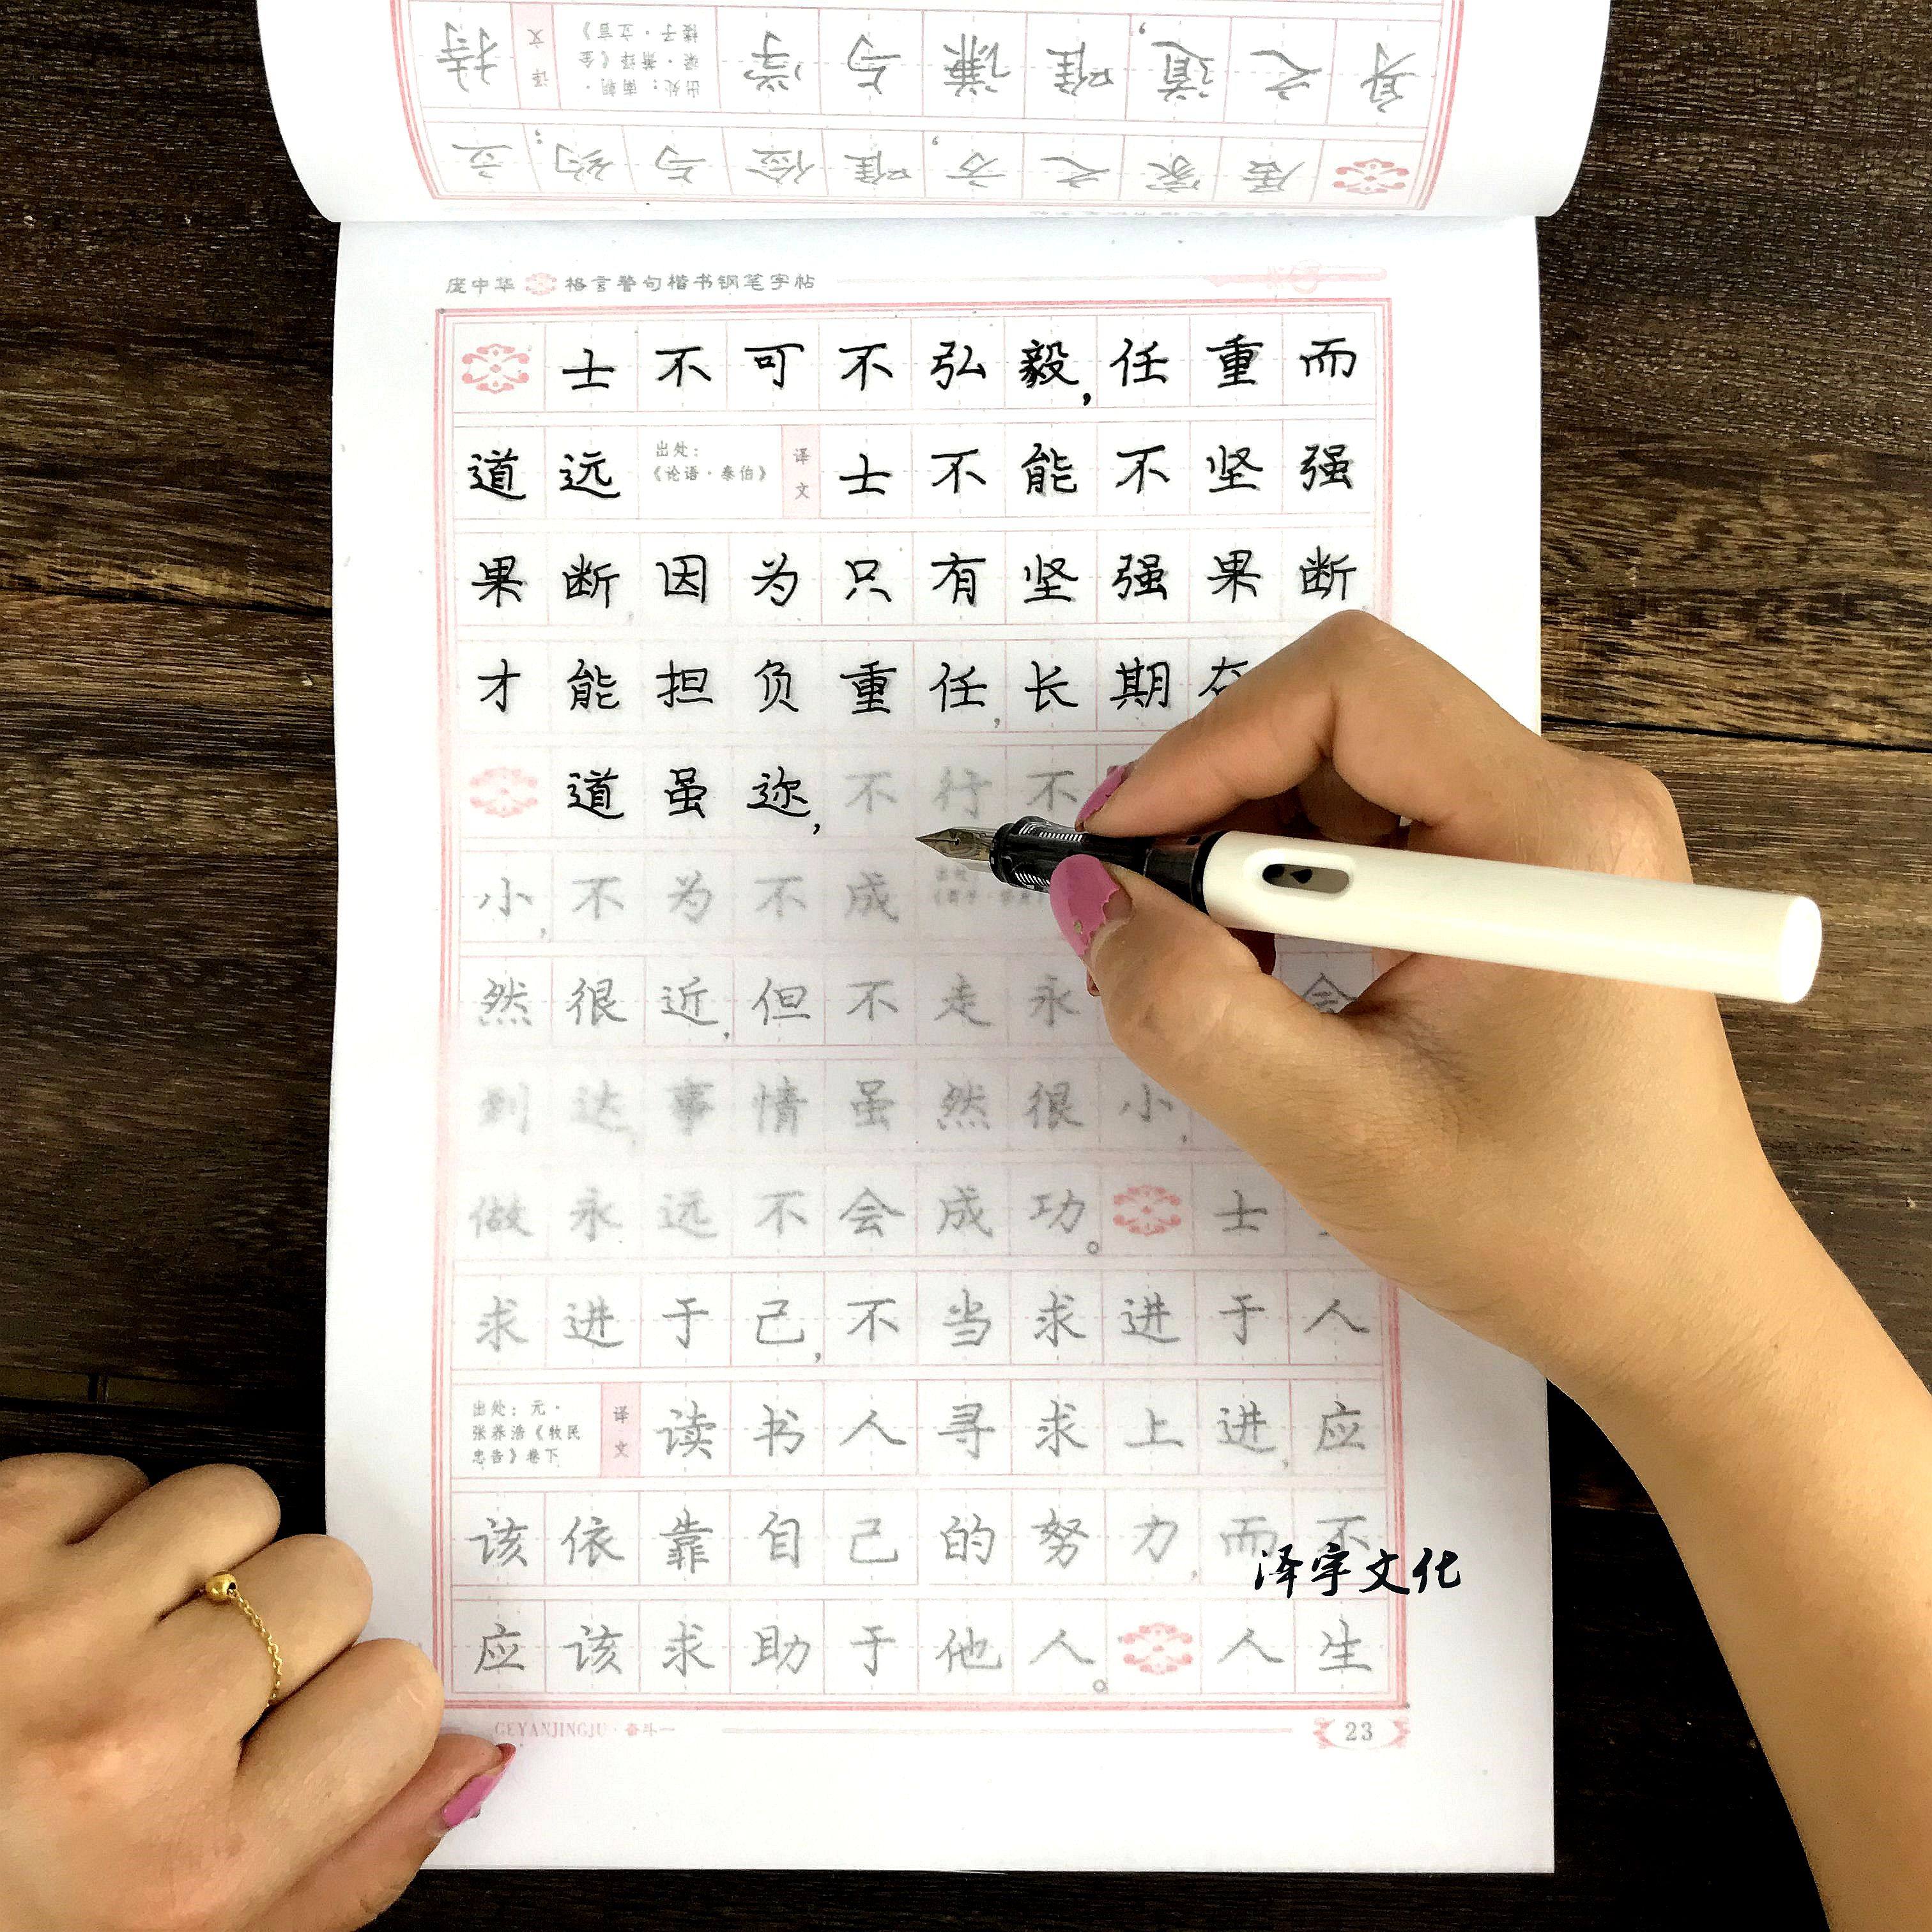 持 译文 出处:南朝·梁·萧绎《金楼子·立言》 学 与 谦 唯 道, 之 身
立 约; 与 俭 唯 方, 之 家 居
庞中华 格言警句楷书钢笔字帖
士不可不弘毅,任重而
道远 出处:《论语·泰伯》 译文 士不能不坚强
果断,因为只有坚强果断,
才能担负重任,长期
道虽迩,不行不
小,不为不成
然很近,但不走永 会
到达,事情虽然很小,
做永远不会成功。 士
求进于己,不当求进于人
出处:元·张养浩《牧民忠告》卷下 译文 读书人寻求上进,应
该依靠自己的努力,而不
泽宇文化
应该求助于他人。 人生
GEYANJINGJU·奋斗一
23